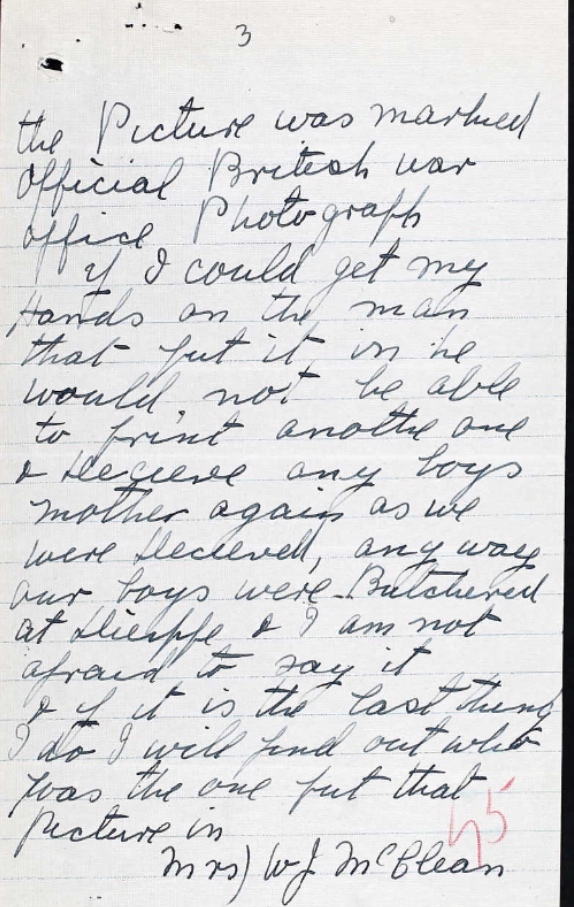 3
the Picture was marked
Official British war
office Photograph
if I could get my
Hands on the man
that put it in he
would not be able
to print anothe one
& decieve any boys
mother again as we
were decieved, any way
our boys were Butchered
at Dieppe & I am not
afraid to say it
& if it is the last thing
I do I will find out who
was the one put that
picture in
Mrs) W J McClean
45